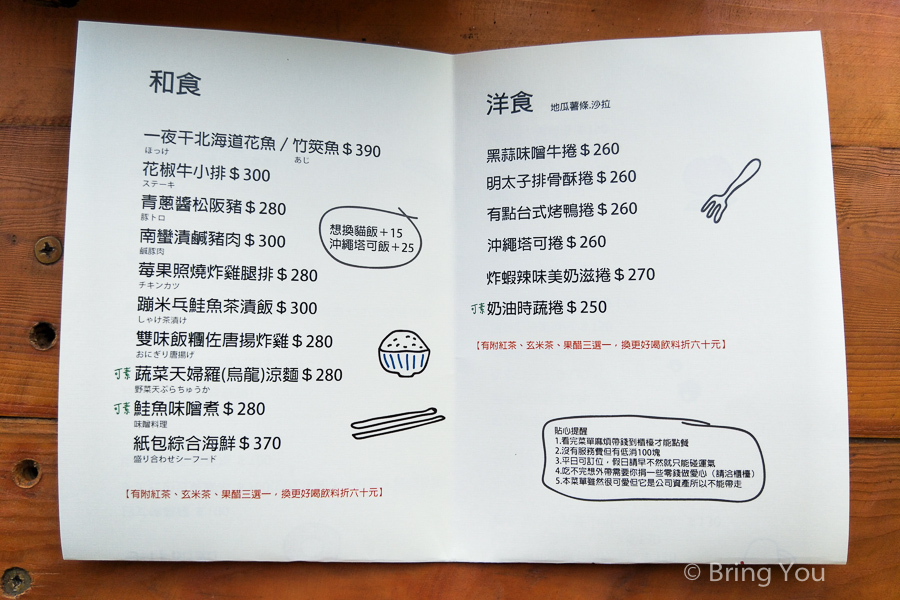 和食
一夜干北海道花魚 / 竹筴魚 $ 390
ほっけ あじ
花椒牛小排 $ 300
ステーキ
青蔥醬松阪豬 $ 280
豚トロ
南蠻漬鹹豬肉 $ 300
鹹豚肉
莓果照燒炸雞腿排 $ 280
チキンカツ
蹦米乓鮭魚茶漬飯 $ 300
しゃけ茶漬け
雙味飯糰佐唐揚炸雞 $ 280
おにぎり唐揚げ
可素 蔬菜天婦羅(烏龍)涼麵 $ 280
野菜天ぷらちゅうか
可素 鮭魚味噌煮 $ 280
味噌料理
紙包綜合海鮮 $ 370
盛り合わせシーフード
【有附紅茶、玄米茶、果醋三選一，換更好喝飲料折六十元】
想換貓飯＋15
沖繩塔可飯＋25
洋食 地瓜薯條.沙拉
黑蒜味噌牛捲 $ 260
明太子排骨酥捲 $ 260
有點台式烤鴨捲 $ 260
沖繩塔可捲 $ 260
炸蝦辣味美奶滋捲 $ 270
可素 奶油時蔬捲 $ 250
【有附紅茶、玄米茶、果醋三選一，換更好喝飲料折六十元】
貼心提醒
1.看完菜單麻煩帶錢到櫃檯才能點餐
2.沒有服務費但有低消100塊
3.平日可訂位，假日請早不然就只能碰運氣
4.吃不完想外帶需要你捐一些零錢做愛心（請洽櫃檯）
5.本菜單雖然很可愛但它是公司資產所以不能帶走
© Bring You